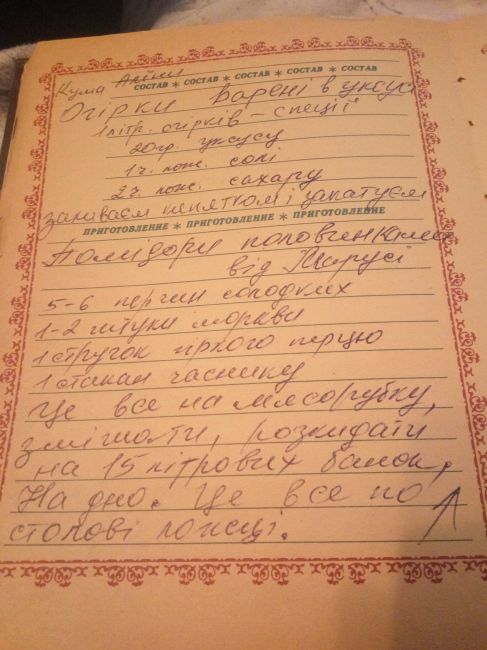 Кума
СОСТАВ ✶ СОСТАВ ✶ СОСТАВ ✶ СОСТАВ ✶ СОСТАВ
Огірки варені в уксусі
1 літр. огірків – спеції
20гр. уксусу
1 ч. лож. солі
2 ч. лож. сахару
заливаєм кипятком і закатуєм
ПРИГОТОВЛЕНИЕ ✶ ПРИГОТОВЛЕНИЕ ✶ ПРИГОТОВЛЕНИЕ
Помідори половинками
від Марусі
5-6 перчин солодких
1-2 штуки моркви
1 стручок гіркого перцю
1 стакан часнику
Це все на мясорубку,
змішати, розкидати
на 15 літрових банок,
На дно. Це все по
столові ложці.